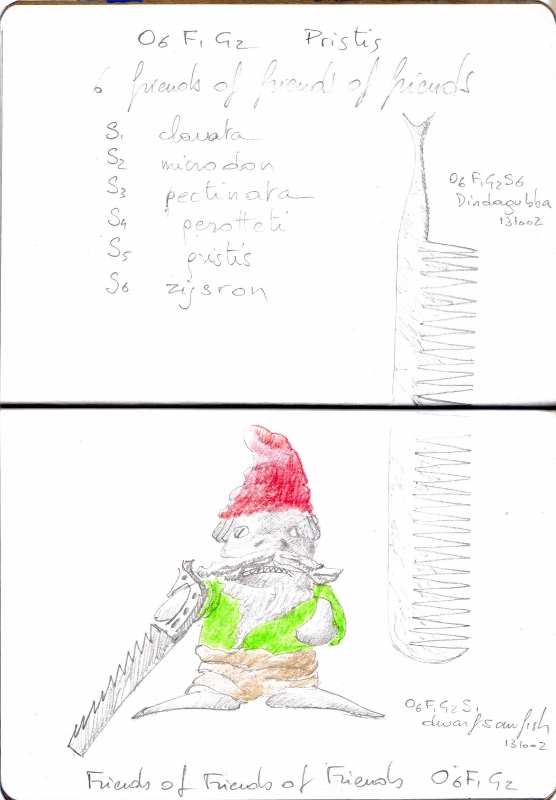 O6 F1 G2 Pristis
6 friends of friends of friends
S1 clavata
S2 microdon
S3 pectinata
S4 perotteti
S5 pristis
S6 zijsron
O6 F1 G2 S6
Dindagubba
131002
O6 F1 G2 S1
dwarf sawfish
131002
Friends of Friends of Friends O6 F1 G2